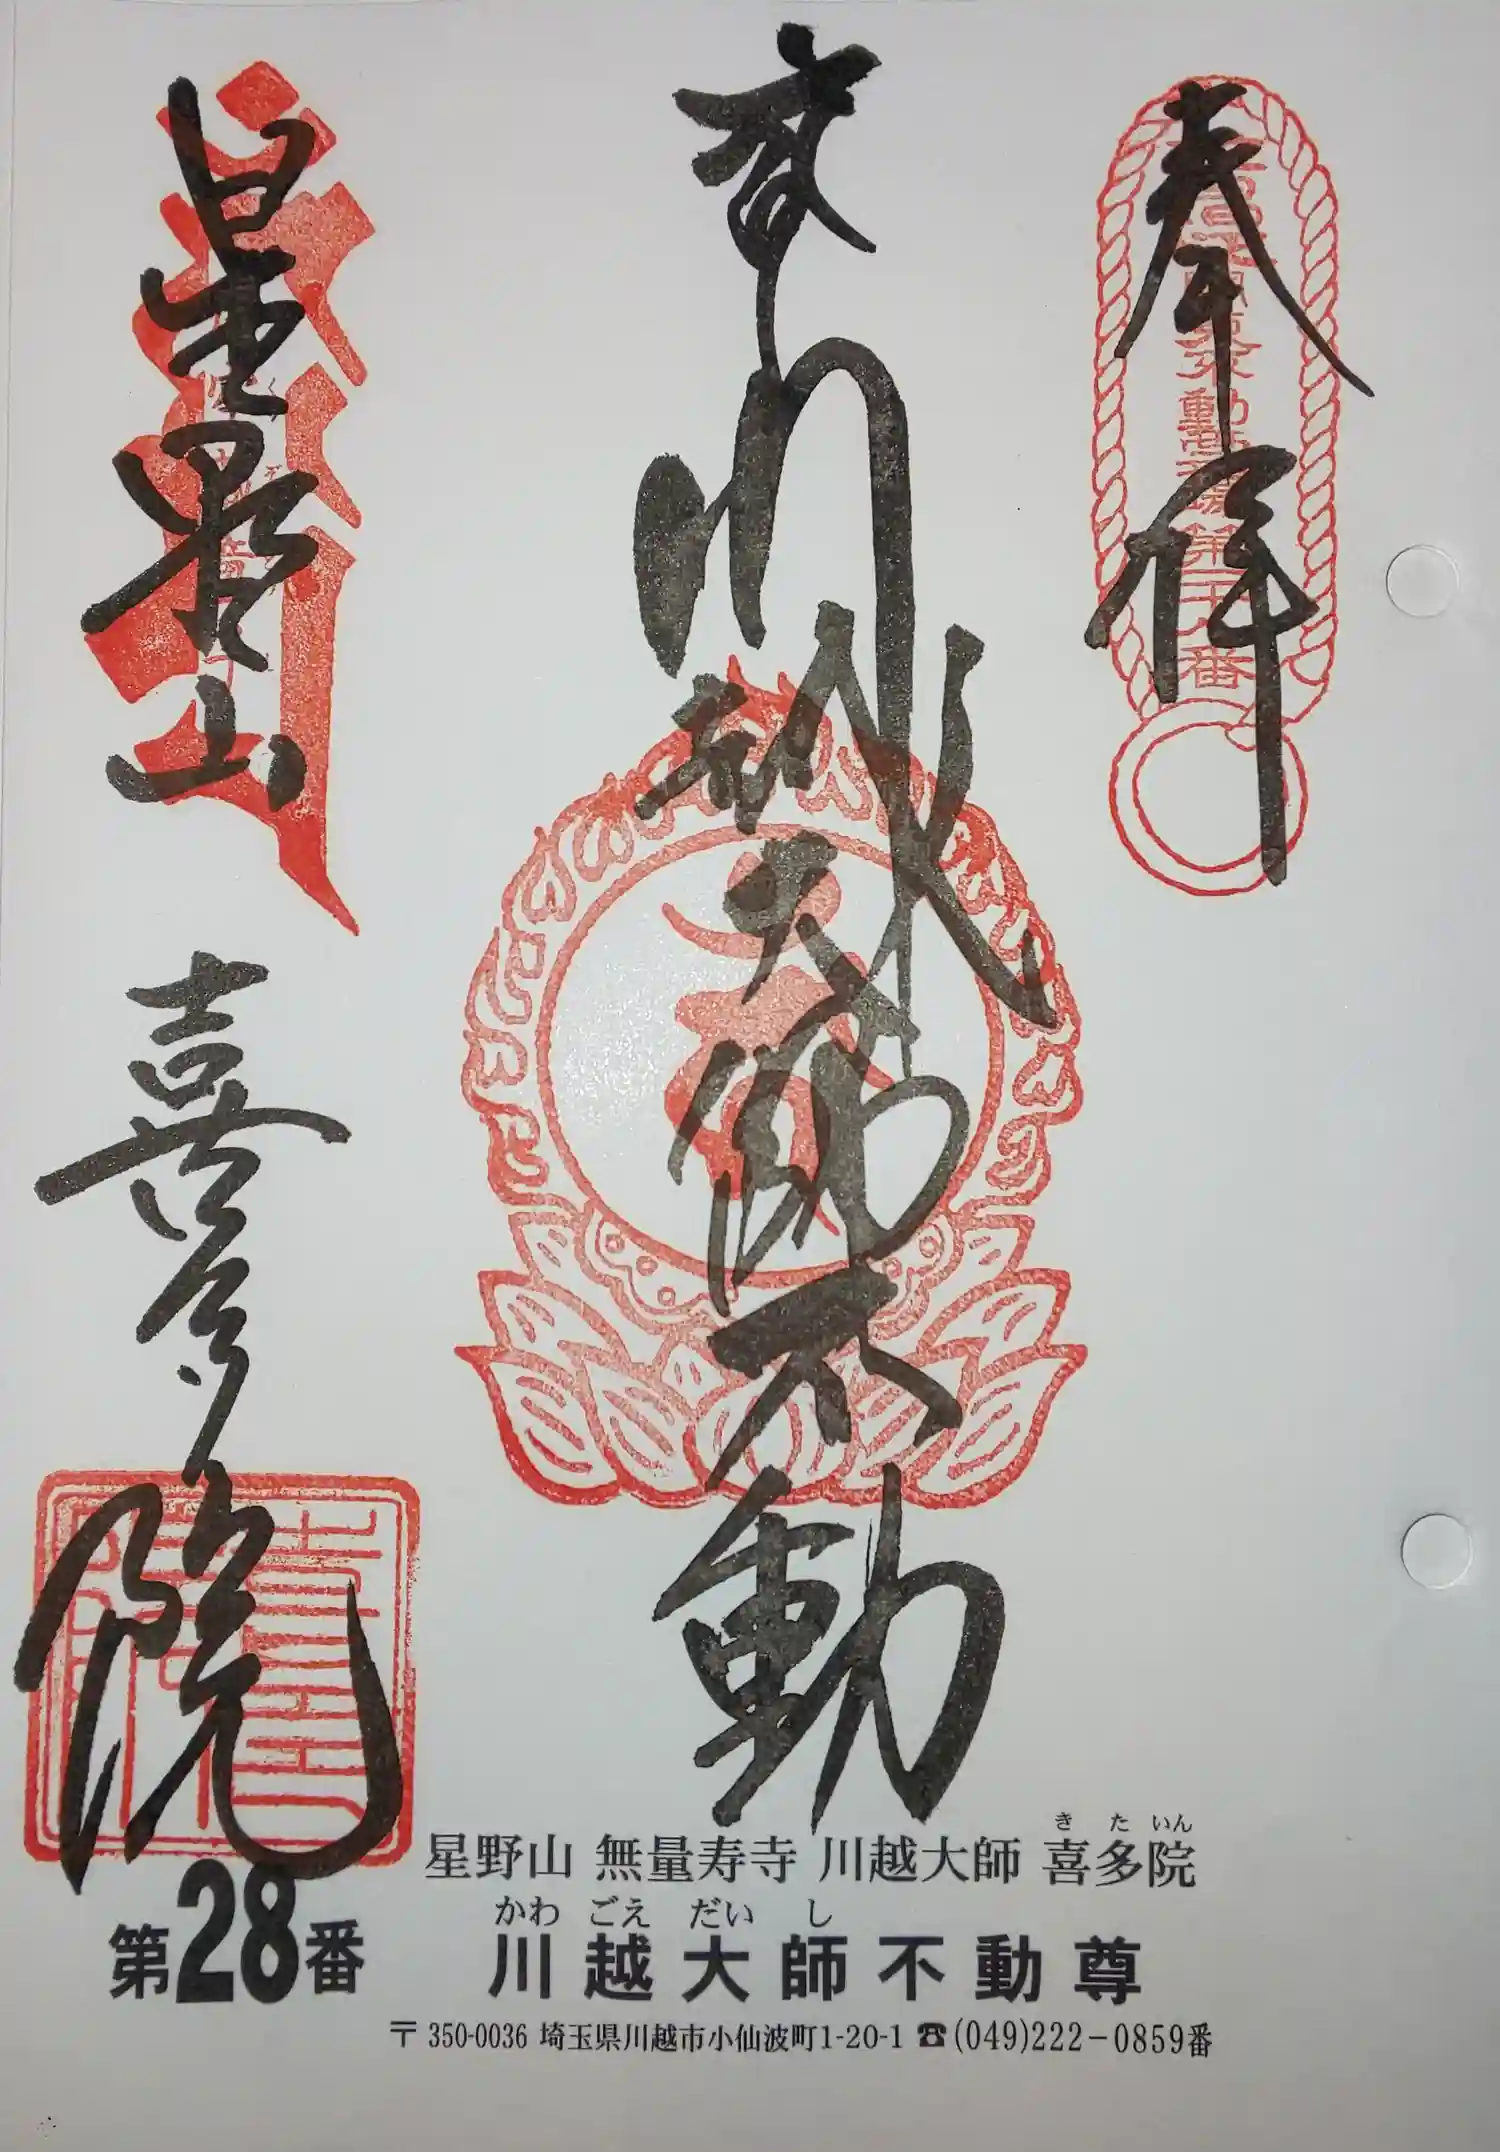 奉拝
川越大師不動
星野山
喜多院
き た いん
星野山 無量寿寺 川越大師 喜多院
かわ ごえ だい し
第28番 川越大師不動尊
〒350-0036 埼玉県川越市小仙波町1-20-1 ☎(049)222-0859番